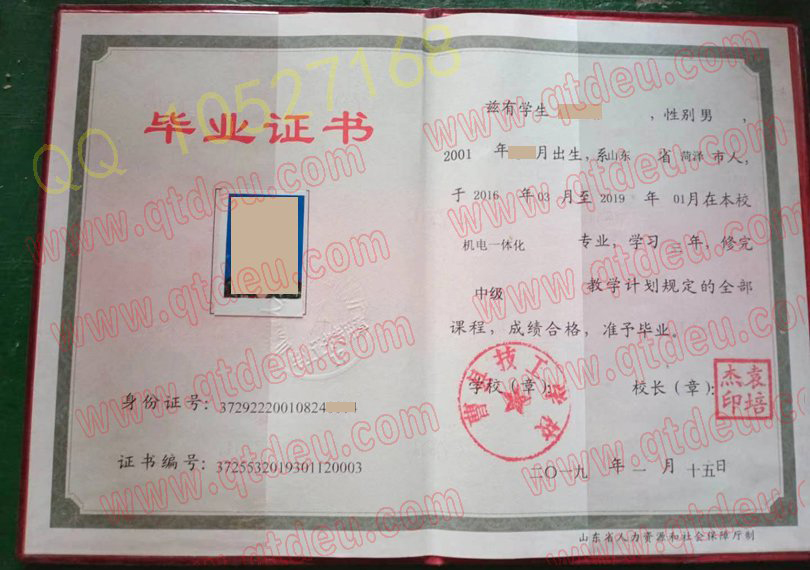 毕业证书
身份证号：37292220010824
证书编号：3725532019301120003
兹有学生　　　，性别男，
2001 年　　月出生，系山东 省 菏泽 市人，
于 2016 年 03 月至 2019 年 01月在本校
机电一体化 专业，学习 三年，修完
中级 教学计划规定的全部
课程，成绩合格，准予毕业。
学校（章）： 校长（章）：
曹县技工学校
袁培杰印
二〇一九 年 一 月 十五日
山东省人力资源和社会保障厅制
QQ 10527168
www.qtdeu.com
www.qtdeu.com
www.qtdeu.com
www.qtdeu.com
www.qtdeu.com
www.qtdeu.com
www.qtdeu.com
www.qtdeu.com